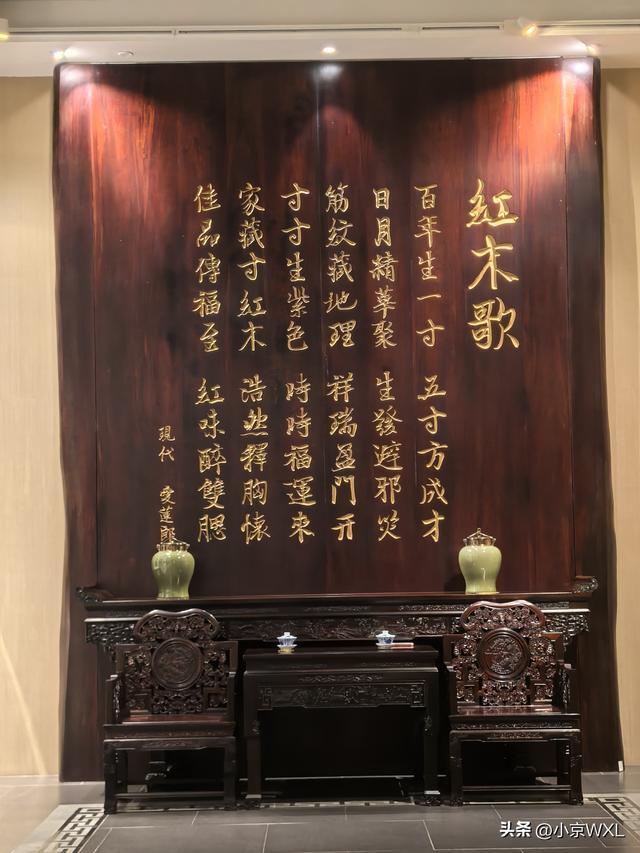 紅木歌
百年生一寸 五寸方成才
日月精華聚 生發避邪災
筋紋藏地理 祥瑞盈門开
寸寸生紫色 時時福運來
家藏寸紅木 浩然釋胸懷
佳品傳福至 紅味醉雙腮
現代 愛蓮郎
头条 @小京WXL